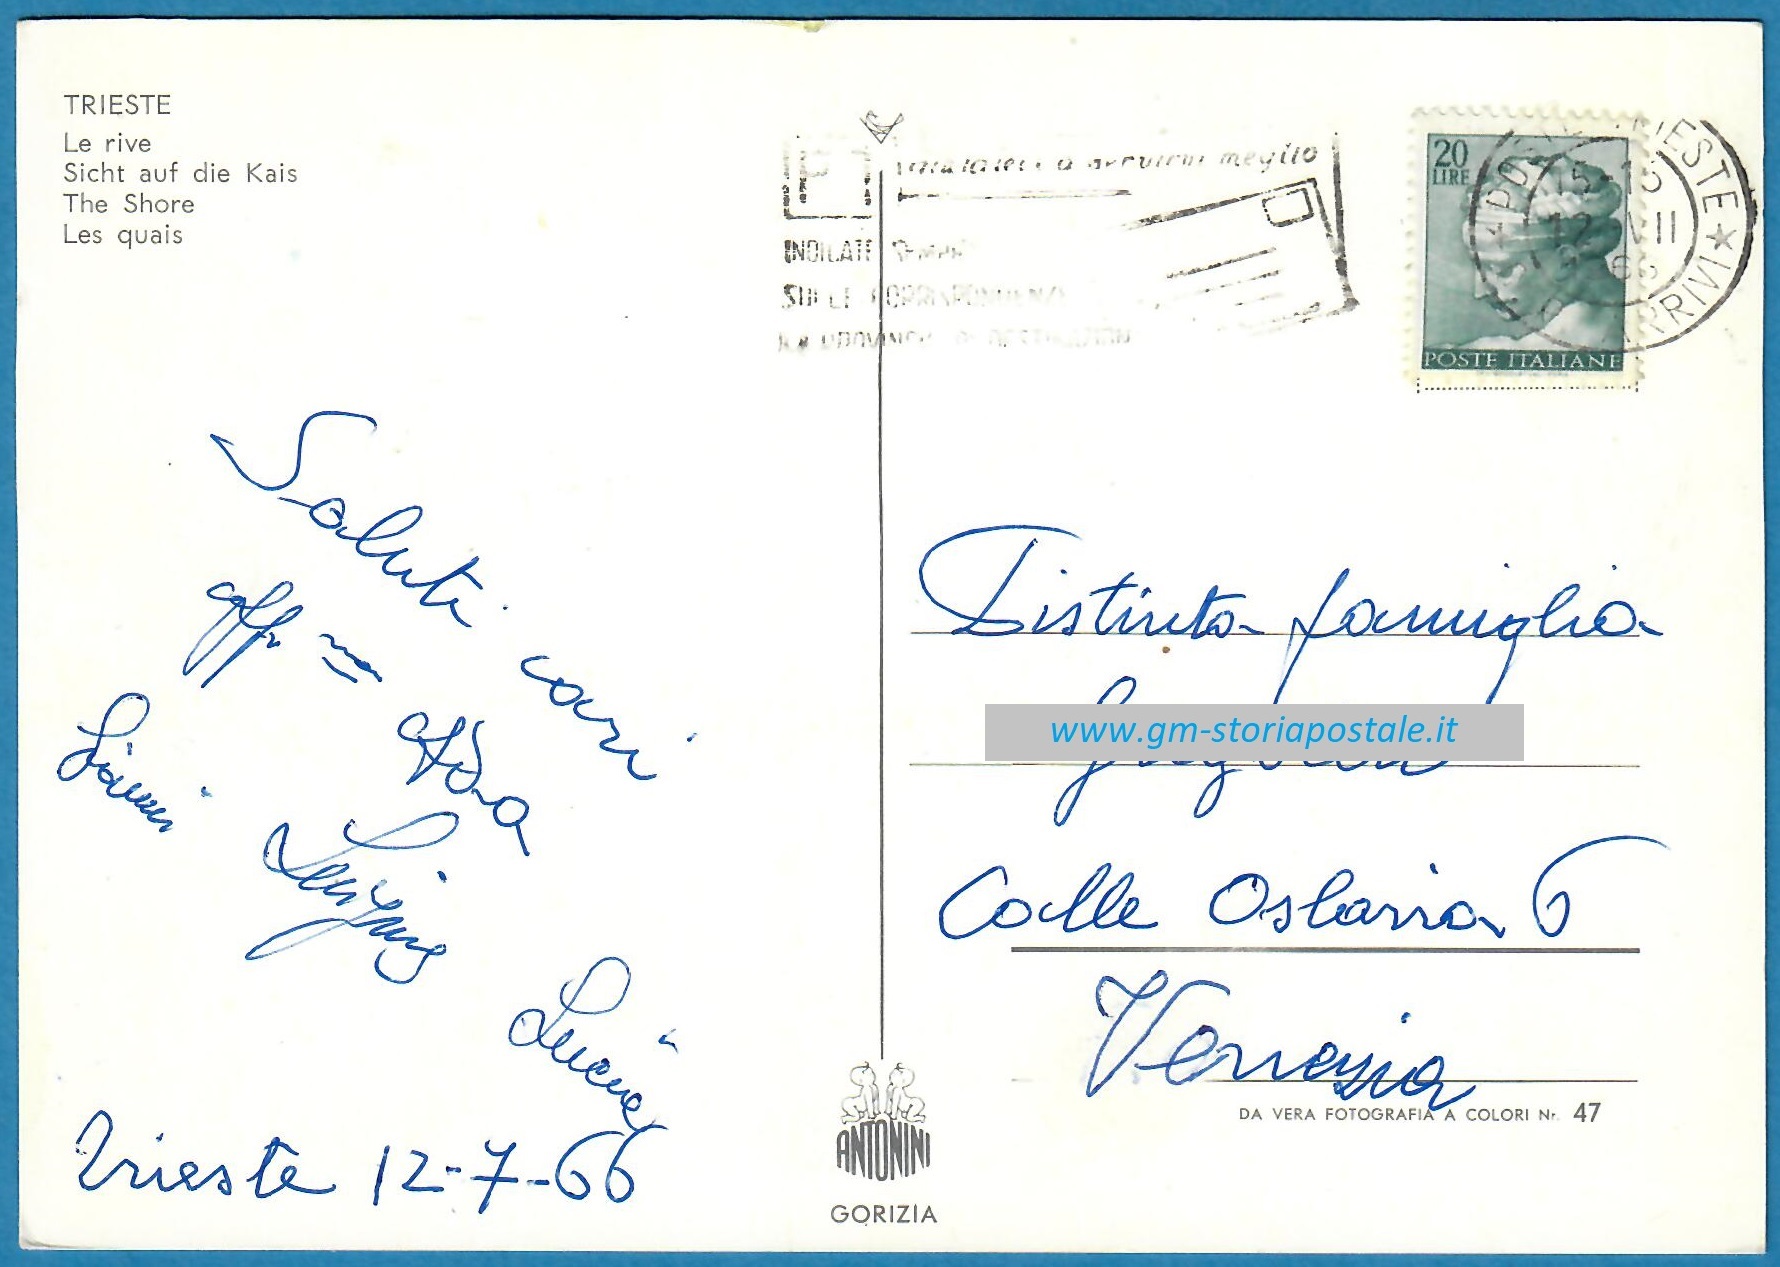 TRIESTE
Le rive
Sicht auf die Kais
The Shore
Les quais
a servirvi meglio
INDICATE SEMPRE
SULLE CORRISPONDENZE
LA PROVINCIA DI DESTINAZIONE
20
LIRE
POSTE ITALIANE
POSTE TRIESTE
ARRIVI
15-16
12 VII
66
Saluti cari
aff.mo Ada
Gianni Luigina
Lucina
Trieste 12-7-66
Distinta famiglia
www.gm-storiapostale.it
Calle Oslavia 6
Venezia
DA VERA FOTOGRAFIA A COLORI Nr. 47
ANTONINI
GORIZIA